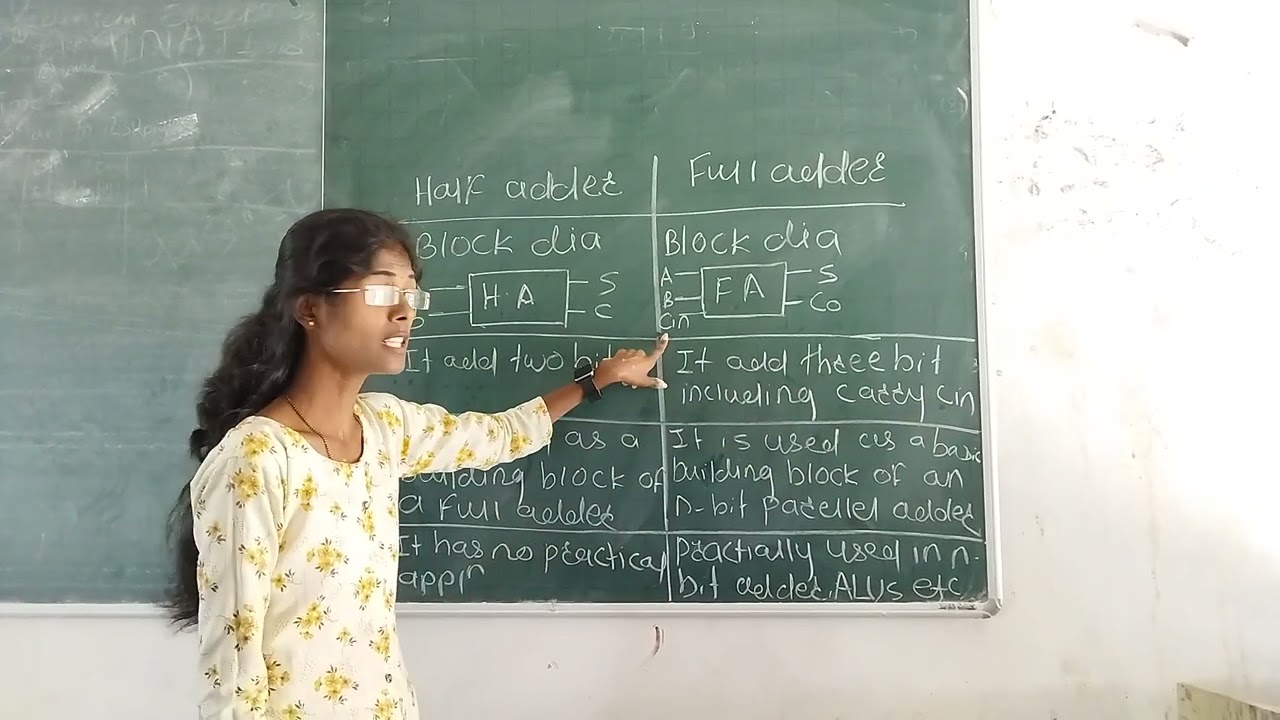 Half adder
Full adder
Block dia
Block dia
H.A
S
C
A
B
Cin
FA
S
Co
It add two
It add three bit
including carry Cin
as a
building block of
a Full adder
It is used as a basic
building block of an
n-bit parellel adder
It has no practical
appln
practially used in n-
bit adder, ALUs etc